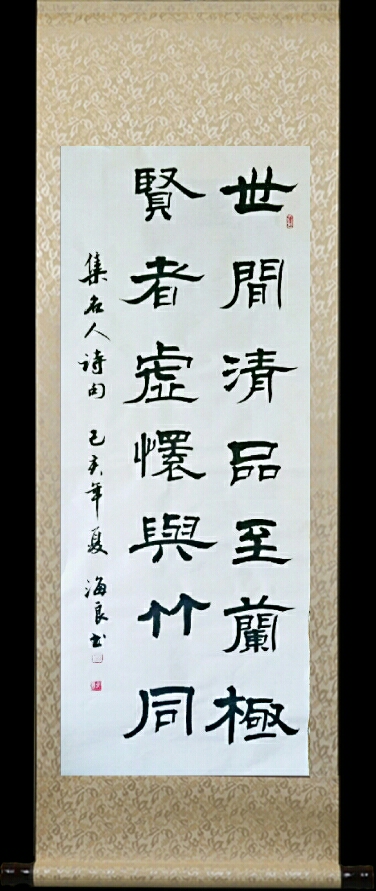 世間清品至蘭極
賢者虛懷與竹同
集名人诗句 己亥年夏 海良书